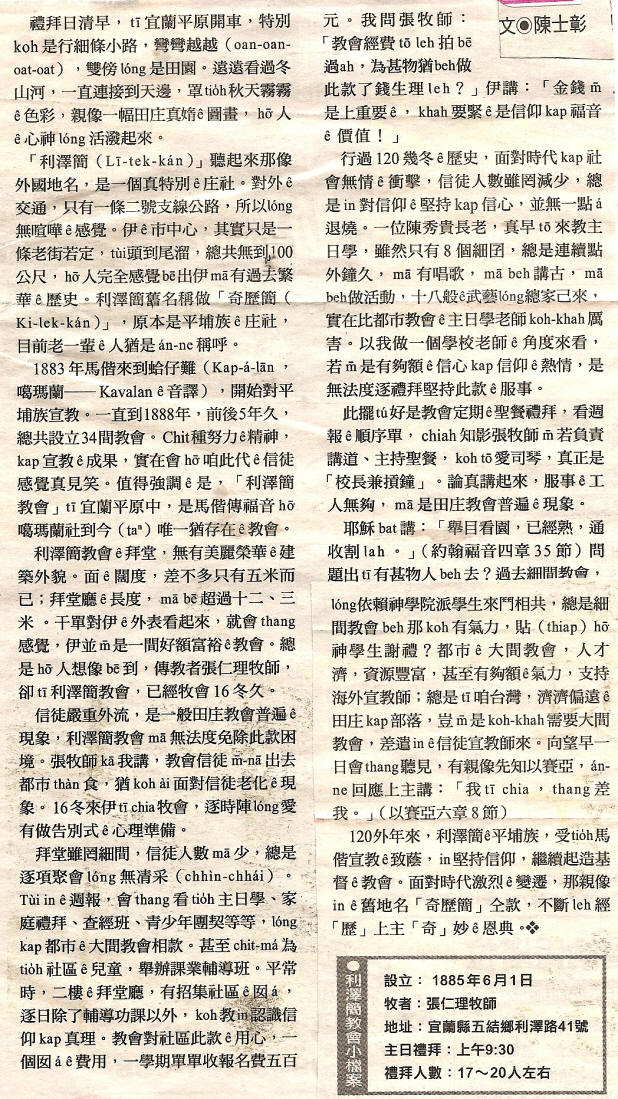 文◉陳士彰
禮拜日清早，tī 宜蘭平原開車，特別
koh 是行細條小路，彎彎越越（oan-oan-
oat-oat），雙傍 lóng 是田園。遠遠看過冬
山河，一直連接到天邊，罩 tiòh 秋天霧霧
ê 色彩，親像一幅田庄真媠 ê 圖畫，hō͘ 人
ê 心神 lóng 活潑起來。
「利澤簡（Lī-tek-kán）」聽起來那像
外國地名，是一個真特別 ê 庄社。對外 ê
交通，只有一條二號支線公路，所以 lóng
無喧嘩 ê 感覺。伊 ê 市中心，其實只是一
條老街若定，tùi 頭到尾溜，總共無到100
公尺，hō͘ 人完全感覺 bē 出伊 mā 有過去繁
華 ê 歷史。利澤簡舊名稱做「奇歷簡（
Ki-lek-kán）」，原本是平埔族 ê 庄社，
目前老一輩 ê 人猶是 án-ne 稱呼。
1883 年馬偕來到蛤仔難（Kap-á-lān，
噶瑪蘭── Kavalan ê 音譯），開始對平
埔族宣教。一直到1888年，前後5年久，
總共設立34間教會。Chit 種努力 ê 精神，
kap 宣教 ê 成果，實在會 hō͘ 咱此代 ê 信徒
感覺真見笑。值得強調 ê 是，「利澤簡
教會」tī 宜蘭平原中，是馬偕傳福音 hō͘
噶瑪蘭社到今（taⁿ）唯一猶存在 ê 教會。
利澤簡教會 ê 拜堂，無有美麗榮華 ê 建
築外貌。面 ê 闊度，差不多只有五米而
已；拜堂廳 ê 長度，mā bē 超過十二、三
米。干單對伊 ê 外表看起來，就會 thang
感覺，伊並 m̄ 是一間好額富裕 ê 教會。總
是 hō͘ 人想像 bē 到，傳教者張仁理牧師，
卻 tī 利澤簡教會，已經牧會 16 冬久。
信徒嚴重外流，是一般田庄教會普遍 ê
現象，利澤簡教會 mā 無法度免除此款困
境。張牧師 kā 我講，教會信徒 m̄-nā 出去
都市 thàn 食，猶 koh ài 面對信徒老化 ê 現
象。16冬來伊 tī chia 牧會，逐時陣 lóng 愛
有做告別式 ê 心理準備。
拜堂雖罔細間，信徒人數 mā 少，總是
逐項聚會 lóng 無清采（chhìn-chhái）。
Tùi in ê 週報，會 thang 看 tiòh 主日學、家
庭禮拜、查經班、青少年團契等等，lóng
kap 都市 ê 大間教會相款。甚至 chit-má 為
tiòh 社區 ê 兒童，舉辦課業輔導班。平常
時，二樓 ê 拜堂廳，有招集社區 ê 囡 á，
逐日除了輔導功課以外，koh 教 in 認識信
仰 kap 真理。教會對社區此款 ê 用心，一
個囡 á ê 費用，一學期單單收報名費五百
元。我問張牧師：
「教會經費 tō leh 拍 bē
過ah，為甚物猶beh做
此款了錢生理 leh？」伊講：「金錢 m̄
是上重要 ê，khah 要緊 ê 是信仰 kap 福音
ê 價值！」
行過 120 幾冬 ê 歷史，面對時代 kap 社
會無情 ê 衝擊，信徒人數雖罔減少，總
是 in 對信仰 ê 堅持 kap 信心，並無一點 á
退燒。一位陳秀貴長老，真早 tō 來教主
日學，雖然只有 8 個細囝，總是連續點
外鐘久，mā 有唱歌，mā beh 講古，mā
beh 做活動，十八般 ê 武藝 lóng 總家己來，
實在比都市教會 ê 主日學老師 koh-khah 厲
害。以我做一個學校老師 ê 角度來看，
若 m̄ 是有夠額 ê 信心 kap 信仰 ê 熱情，是
無法度逐禮拜堅持此款 ê 服事。
此擺 tú 好是教會定期 ê 聖餐禮拜，看週
報 ê 順序單，chiah 知影張牧師 m̄ 若負責
講道、主持聖餐，koh tō 愛司琴，真正是
「校長兼摃鐘」。論真講起來，服事 ê 工
人無夠，mā 是田庄教會普遍 ê 現象。
耶穌 bat 講：「舉目看園，已經熟，通
收割 lah。」（約翰福音四章 35 節）問
題出 tī 有甚物人 beh 去？過去細間教會，
lóng 依賴神學院派學生來鬥相共，總是細
間教會 beh 那 koh 有氣力，貼（thiap）hō͘
神學生謝禮？都市 ê 大間教會，人才
濟，資源豐富，甚至有夠額 ê 氣力，支持
海外宣教師；總是 tī 咱台灣，濟濟偏遠 ê
田庄 kap 部落，豈 m̄ 是 koh-khah 需要大間
教會，差遣 in ê 信徒宣教師來。向望早一
日會 thang 聽見，有親像先知以賽亞，án-
ne 回應上主講：「我 tī chia，thang 差
我。」（以賽亞六章 8 節）
120外年來，利澤簡 ê 平埔族，受 tiòh 馬
偕宣教 ê 致蔭，in 堅持信仰，繼續起造基
督 ê 教會。面對時代激烈 ê 變遷，那親像
in ê 舊地名「奇歷簡」仝款，不斷 leh 經
「歷」上主「奇」妙 ê 恩典。❖
●利澤簡教會小檔案
設立： 1885年6月1日
牧者：張仁理牧師
地址：宜蘭縣五結鄉利澤路41號
主日禮拜：上午9:30
禮拜人數：17～20人左右